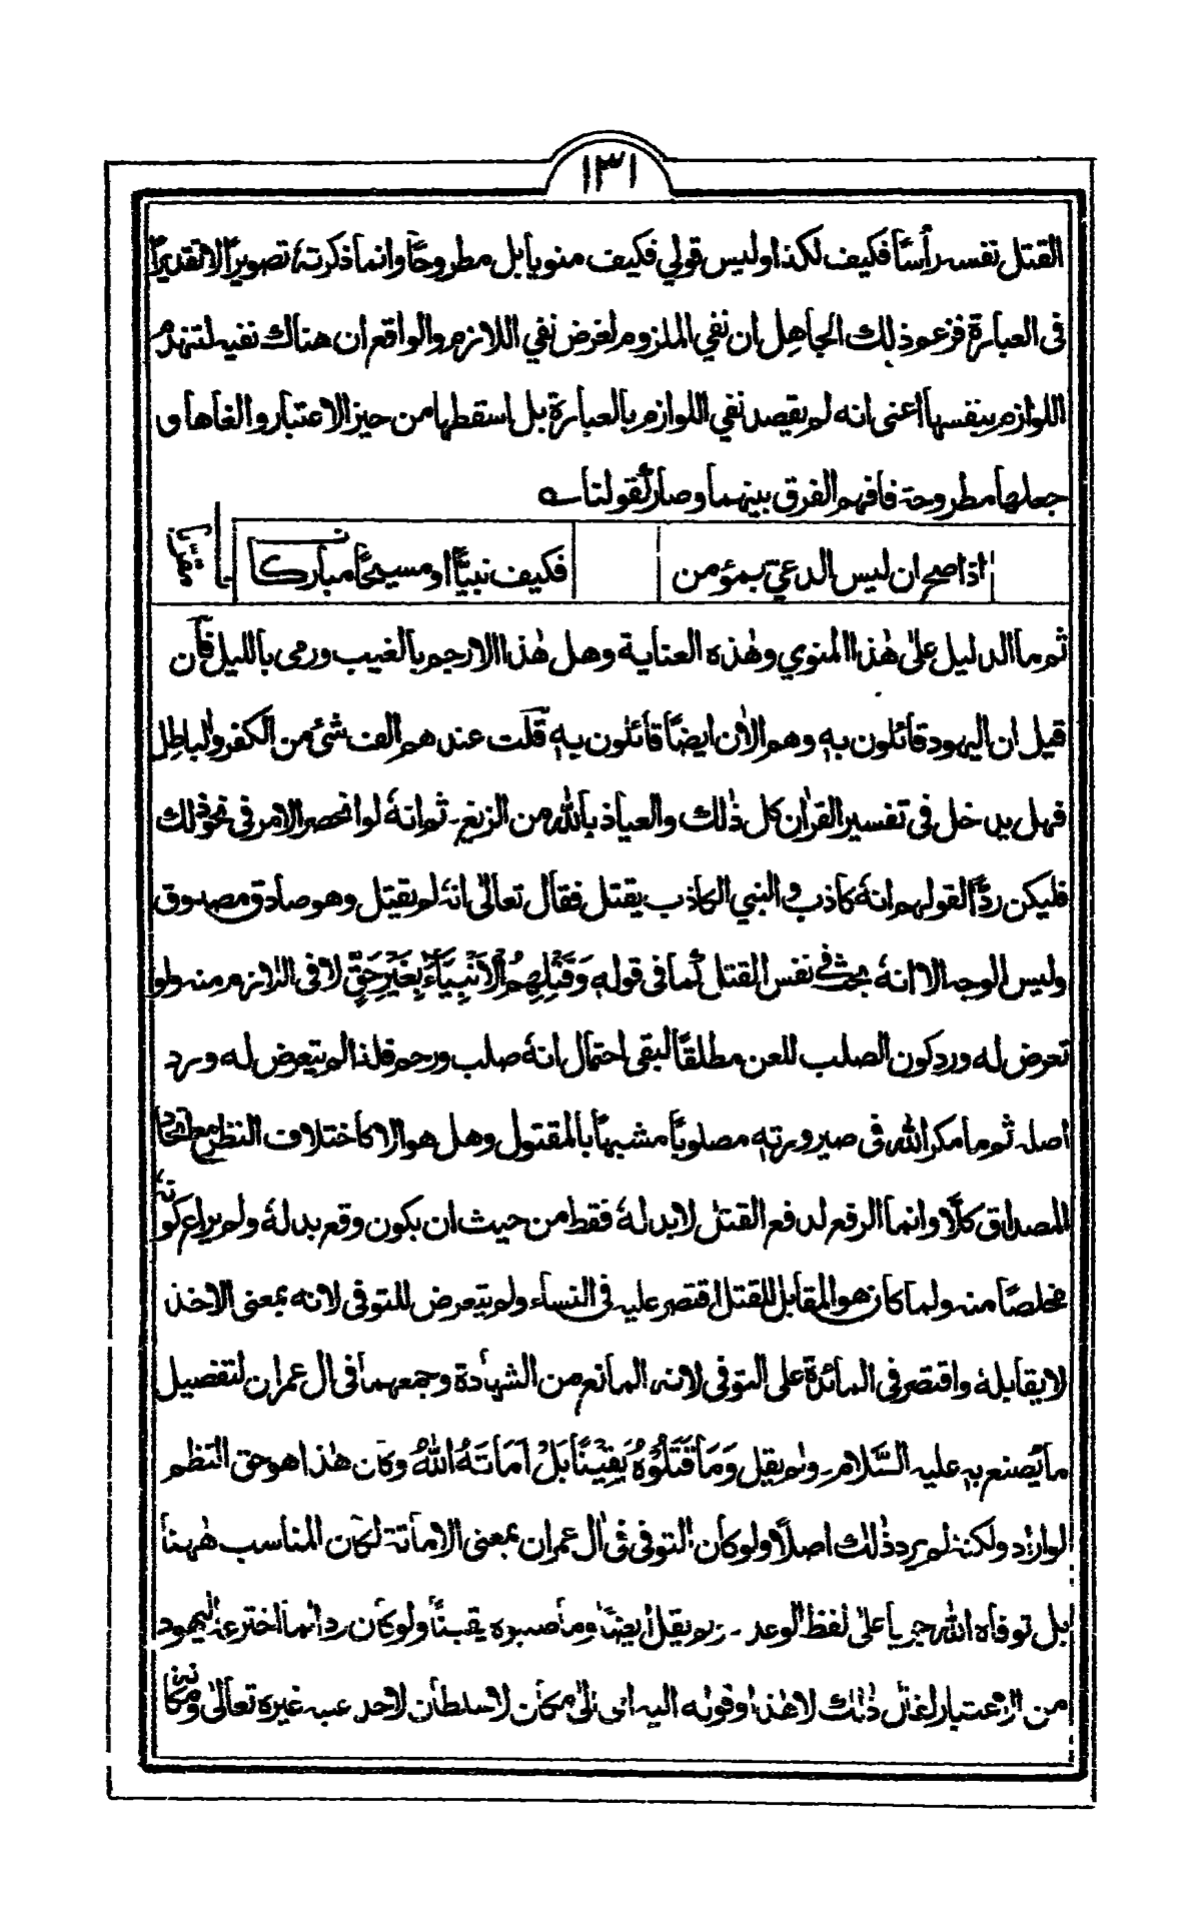 ١٣١
القتل نفسه رأسًا فكيف لكذا وليس قولي فكيف منويا بل مطروحًا وانما ذكرتهٗ تصويرًا لا تقديرًا
فى العبارة فزعم ذلك الجاهل ان نفي الملزوم لغرض نفي اللازم والواقع ان هناك نفيه لتنهدم
اللوازم بنفسها اعنى انه لم يقصد نفي اللوازم بالعبارة بل اسقطها من حيز الاعتبار والغاها و
جعلها مطروحة فافهم الفرق بينهما وصار كقولنا ے
اذا صح ان ليس الدعيّ بمؤمن فكيف نبيًّا او مسيحًا مباركا
ثم ما الدليل على هٰذا المنوي وهٰذه العناية وهل هٰذا الا رجم بالغيب ورمى بالليل فان
قيل ان اليهود قائلون به وهم الاٰن ايضًا قائلون به قلت عندهم الف شئ من الكفر والباطل
فهل يدخل فى تفسير القراٰن كل ذٰلك والعياذ باللّٰه من الزيغ۔ ثم انهٗ لو انحصر الامر فى نحو ذلك
فليكن ردًّا لقولهم انهٗ كاذب و النبي الكاذب يقتل فقال تعالىٰ انهٗ لم يقتل وهو صادق مصدوق
وليس الوجه الا انهٗ بحث في نفس القتل كما فى قوله وَقَتْلِهِمُ الْاَنْۢبِيَآءَ بِغَيْرِ حَقٍّ لا فى اللازم منه ولو
تعرض له ورد كون الصلب للعن مطلقًا لبقى احتمال انهٗ صلب ورحم فلذا لم يتعرض له ورد
اصله ثم ما مكر اللّٰه فى صيرورته مصلوبًا مشبهًا بالمقتول وهل هو الا كاختلاف النظر مع اتحاد
المصداق كلّا وانما الرفع لدفع القتل لا بدلهٗ فقط من حيث ان يكون وقع بدلهٗ ولم يراع كونهٗ
مخلصًا منه ولما كان هو المقابل للقتل اقتصر عليه فى النساء ولم يتعرض للتوفى لانه بمعنى الاخذ
لا يقابلهٗ واقتصر فى المائدة على التوفى لانه المانع من الشهادة وجمعهما فى اٰل عمران لتفصيل
ما يُصنع به عليه السَّلام۔ ولم يقل وَمَا قَتَلُوْهُ يَقِيْنًا بَلْ اَمَاتَهُ اللّٰهُ وكان هٰذا هو حق النظم
لو اراد ولكنه لم يرد ذٰلك اصلًا ولو كان التوفى فى اٰل عمران بمعنى الاماتة لكان المناسب هٰهنا
بل توفاه اللّٰه جريا على لفظ الوعد۔ ولم يقل ايضًا وما صلبوه يقينًا ولو كان ردا لما اخترعهٗ اليهود
من الاعتبار لقال ذٰلك لا هٰذا وقوله اليه اى الىٰ مكان لا سلطان لاحد عليه غيره تعالىٰ ومكانته